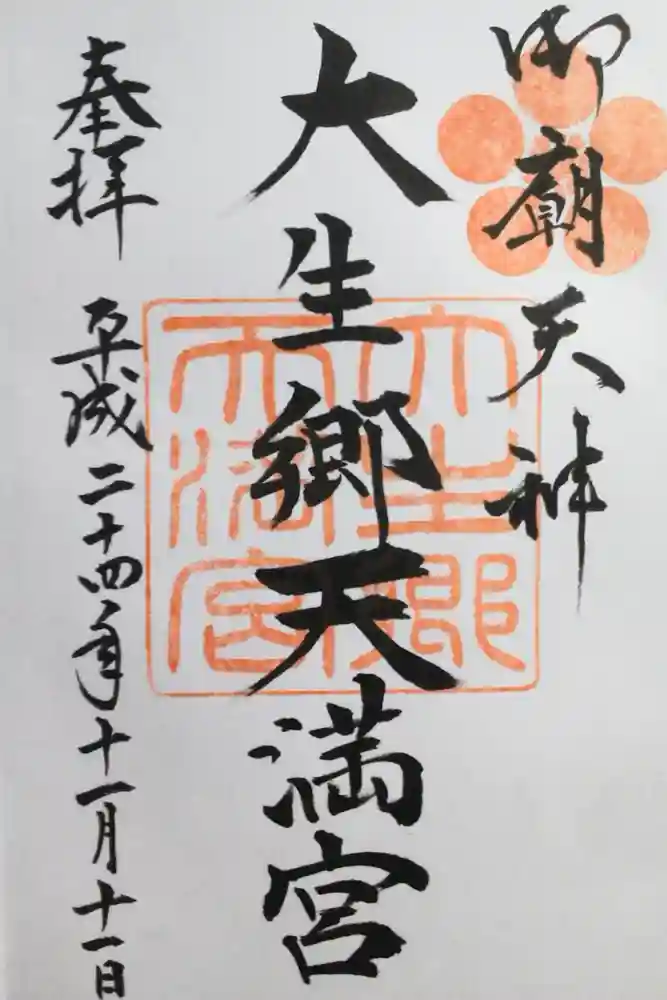 御廟天神
大生郷天満宮
大生郷天満宮
奉拝 平成二十四年十一月十一日